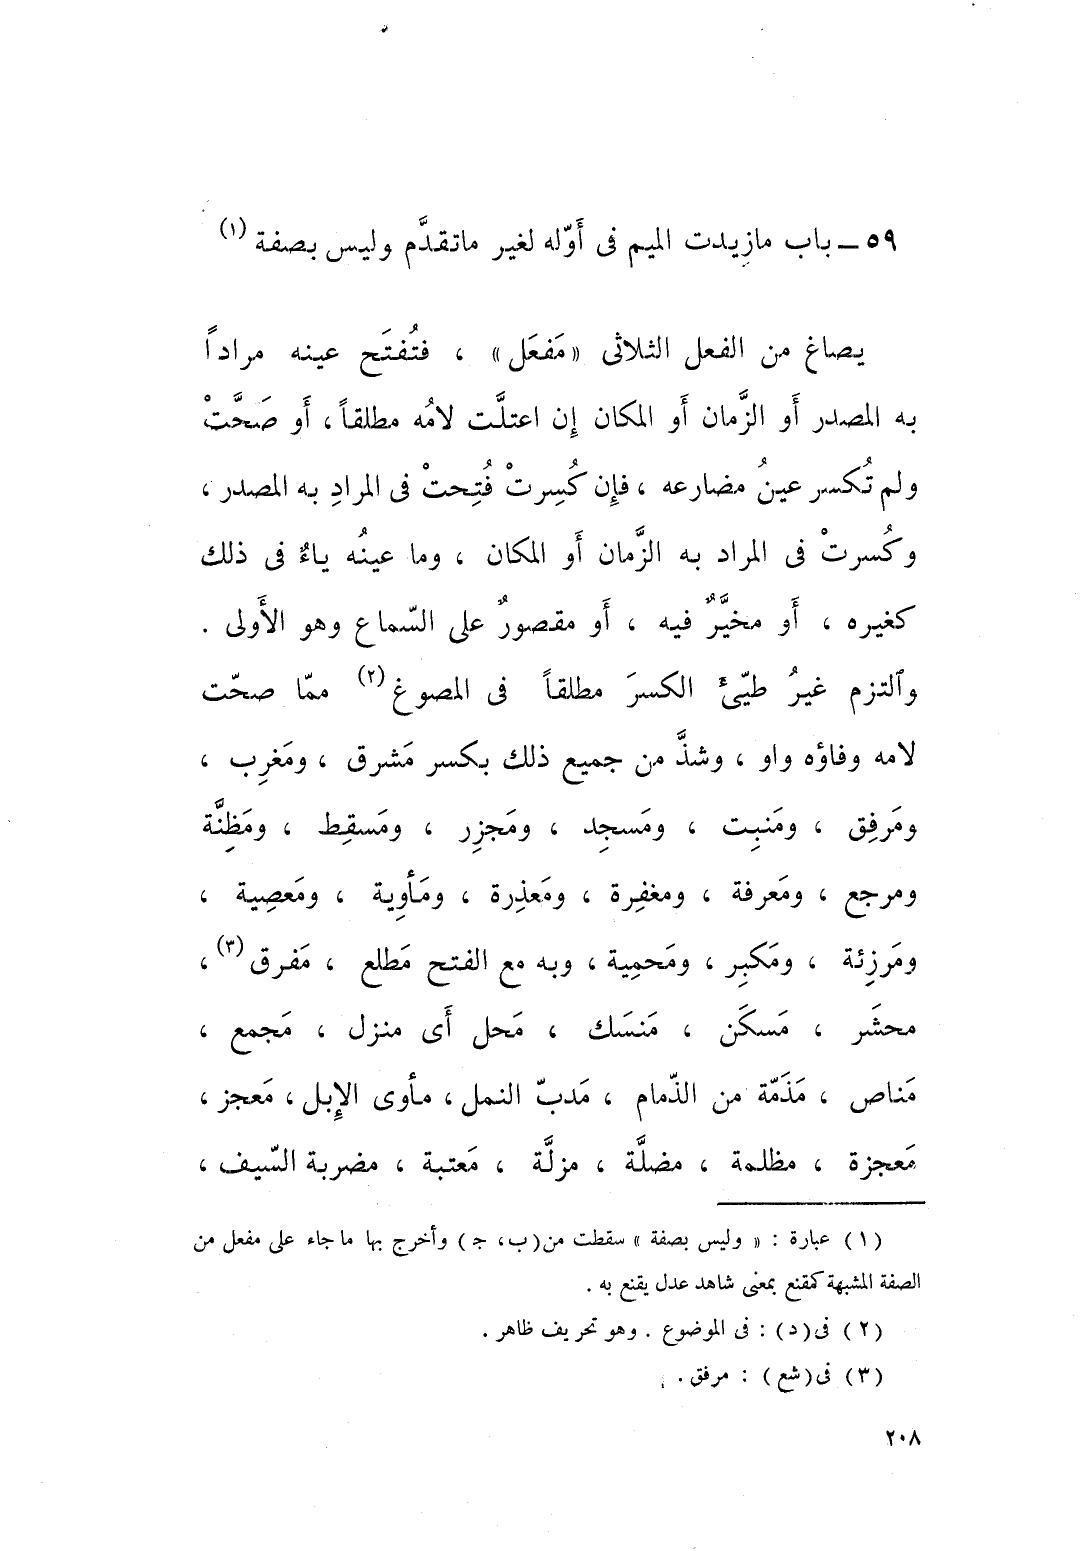 ٥٩ ــ باب مازيدت الميم فى أَوّله لغير ماتقدَّم وليس بصفة (١)
يصاغ من الفعل الثلاثى «مَفعَل» ، فتُفتَح عينه مراداً
به المصدر أَو الزَّمان أَو المكان إِن اعتلَّت لامُه مطلقاً ، أَو صَحَّتْ
ولم تُكسر عينُ مضارعه ، فإِن كُسِرتْ فُتِحتْ فى المرادِ به المصدر ،
وكُسرتْ فى المراد به الزَّمان أَو المكان ، وما عينُه ياءٌ فى ذلك
كغيره ، أَو مخيَّرٌ فيه ، أَو مقصورٌ على السّماع وهو الأَولى .
وٱلتزم غيرُ طيّئ الكسرَ مطلقاً فى المصوغ (٢) ممّا صحّت
لامه وفاؤه واو ، وشذَّ من جميع ذلك بكسر مَشرق ، ومَغرِب ،
ومَرفِق ، ومَنبِت ، ومَسجِد ، ومَجزِر ، ومَسقِط ، ومَظِنَّة
ومرجع ، ومَعرفة ، ومغفِرة ، ومَعذِرة ، ومَأْوِية ، ومَعصِية ،
ومَرزِئة ، ومَكبِر ، ومَحمِية ، وبه مع الفتح مَطلع ، مَفرق (٣) ،
محشَر ، مَسكَن ، مَنسَك ، مَحل أَى منزل ، مَجمع ،
مَناص ، مَذَمّة من الذّمام ، مَدبّ النمل ، مأْوى الإِبل ، مَعجز ،
مَعجزة ، مظلمة ، مضلَّة ، مزلَّة ، مَعتبة ، مضربة السّيف ،
(١) عبارة : « وليس بصفة » سقطت من (ب ، ج) وأخرج بها ماجاء على مفعل من
الصفة المشبهة كمقنع بمعنى شاهد عدل يقنع به .
(٢) فى (د) : فى الموضوع . وهو تحريف ظاهر .
(٣) فى (شع) : مرفق .
٢٠٨